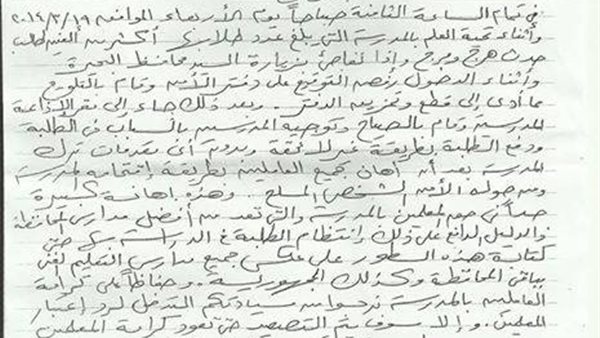 في تمام الساعة الثامنة صباحاً يوم الأربعاء الموافق ٢٠١٤/٣/١٩
وأثناء تحية العلم بالمدرسة التي يبلغ عدد طلابها أكثر من ألفين طالب
حدث هرج ومرج وإذا نفاجئ بزيارة السيد محافظ البحيرة
وأثناء الدخول رفض التوقيع على دفتر الأمن وقام بالتلويح
مما أدى إلى قطع وتمزيق الدفتر. وبعد ذلك جاء إلى مقر الإذاعة
المدرسية وقام بالصياح وتوجيه المدرسين بالسباب في الطلبة
ودفع الطلبة بطريقة غير لائقة وبدون أى مقدمات ترك
المدرسة بعد أن أهان جميع العاملين بطريقة إقتحامه للمدرسة
ومن حوله الأمن الشخصي المسلح. وهذه إهانة كبيرة
جداً في حق المعلمين بالمدرسة والتي تعد من أفضل مدارس المحافظة
والدليل الدافع على ذلك إنتظام الطلبة في الدراسة حتى
كتابة هذه السطور على عكس جميع مدارس التعليم الفني
بباقي المحافظة وكذلك الجمهورية. وحفاظاً على كرامة
العاملين بالمدرسة نرجوا من سيادتكم التدخل لرد إعتبار
المعلمين. وإلا سوف يتم التصعيد حتى تعود كرامة المعلمين